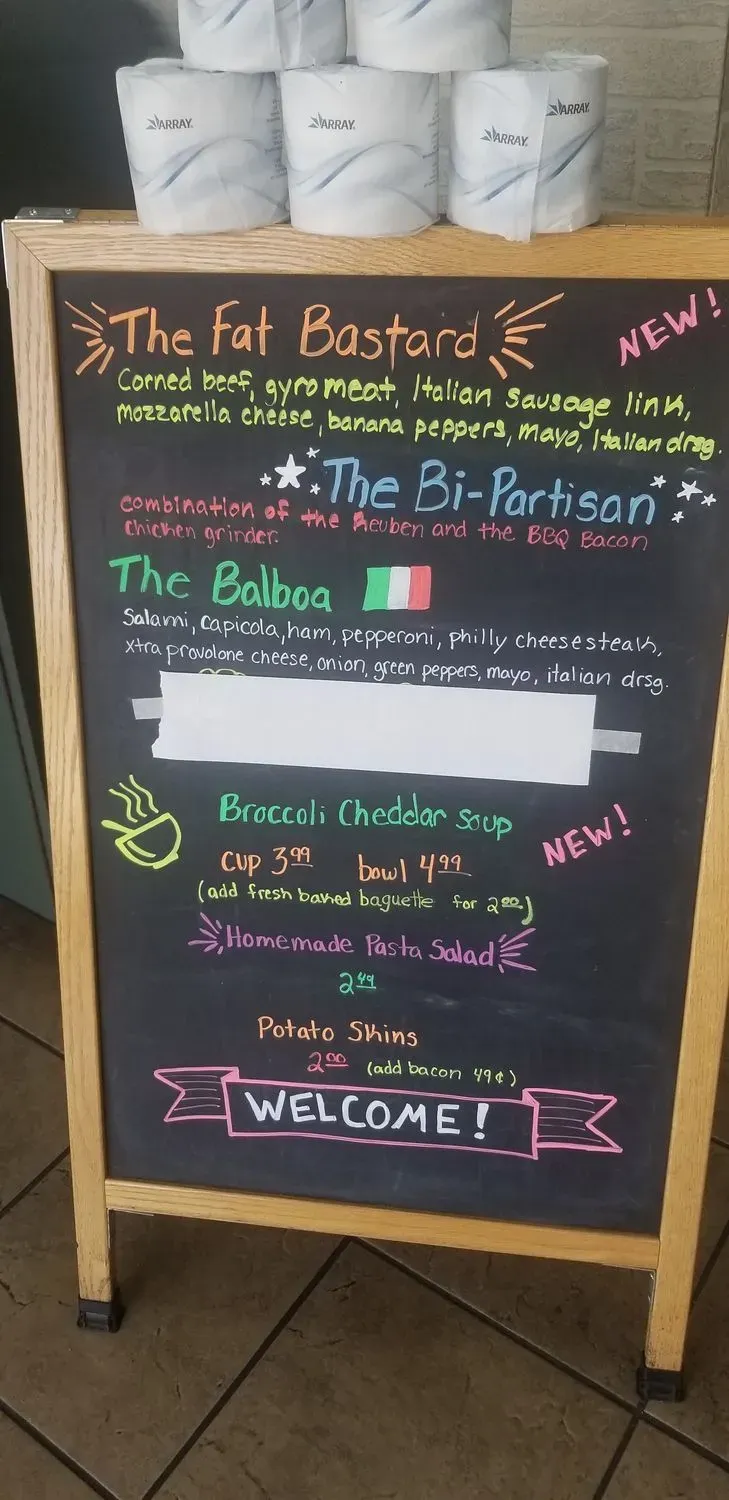 ARRAY
ARRAY
ARRAY
ARRAY
The Fat Bastard
NEW!
Corned beef, gyro meat, Italian sausage link,
mozzarella cheese, banana peppers, mayo, Italian drsg.
The Bi-Partisan
combination of the Reuben and the BBQ Bacon
chicken grinder.
The Balboa
Salami, Capicola, ham, pepperoni, philly cheesesteak,
xtra provolone cheese, onion, green peppers, mayo, italian drsg.
Broccoli Cheddar Soup
NEW!
cup 3.99 bowl 4.99
(add fresh baked baguette for 2.00)
Homemade Pasta Salad
2.49
Potato Skins
2.00 (add bacon 49¢)
WELCOME!